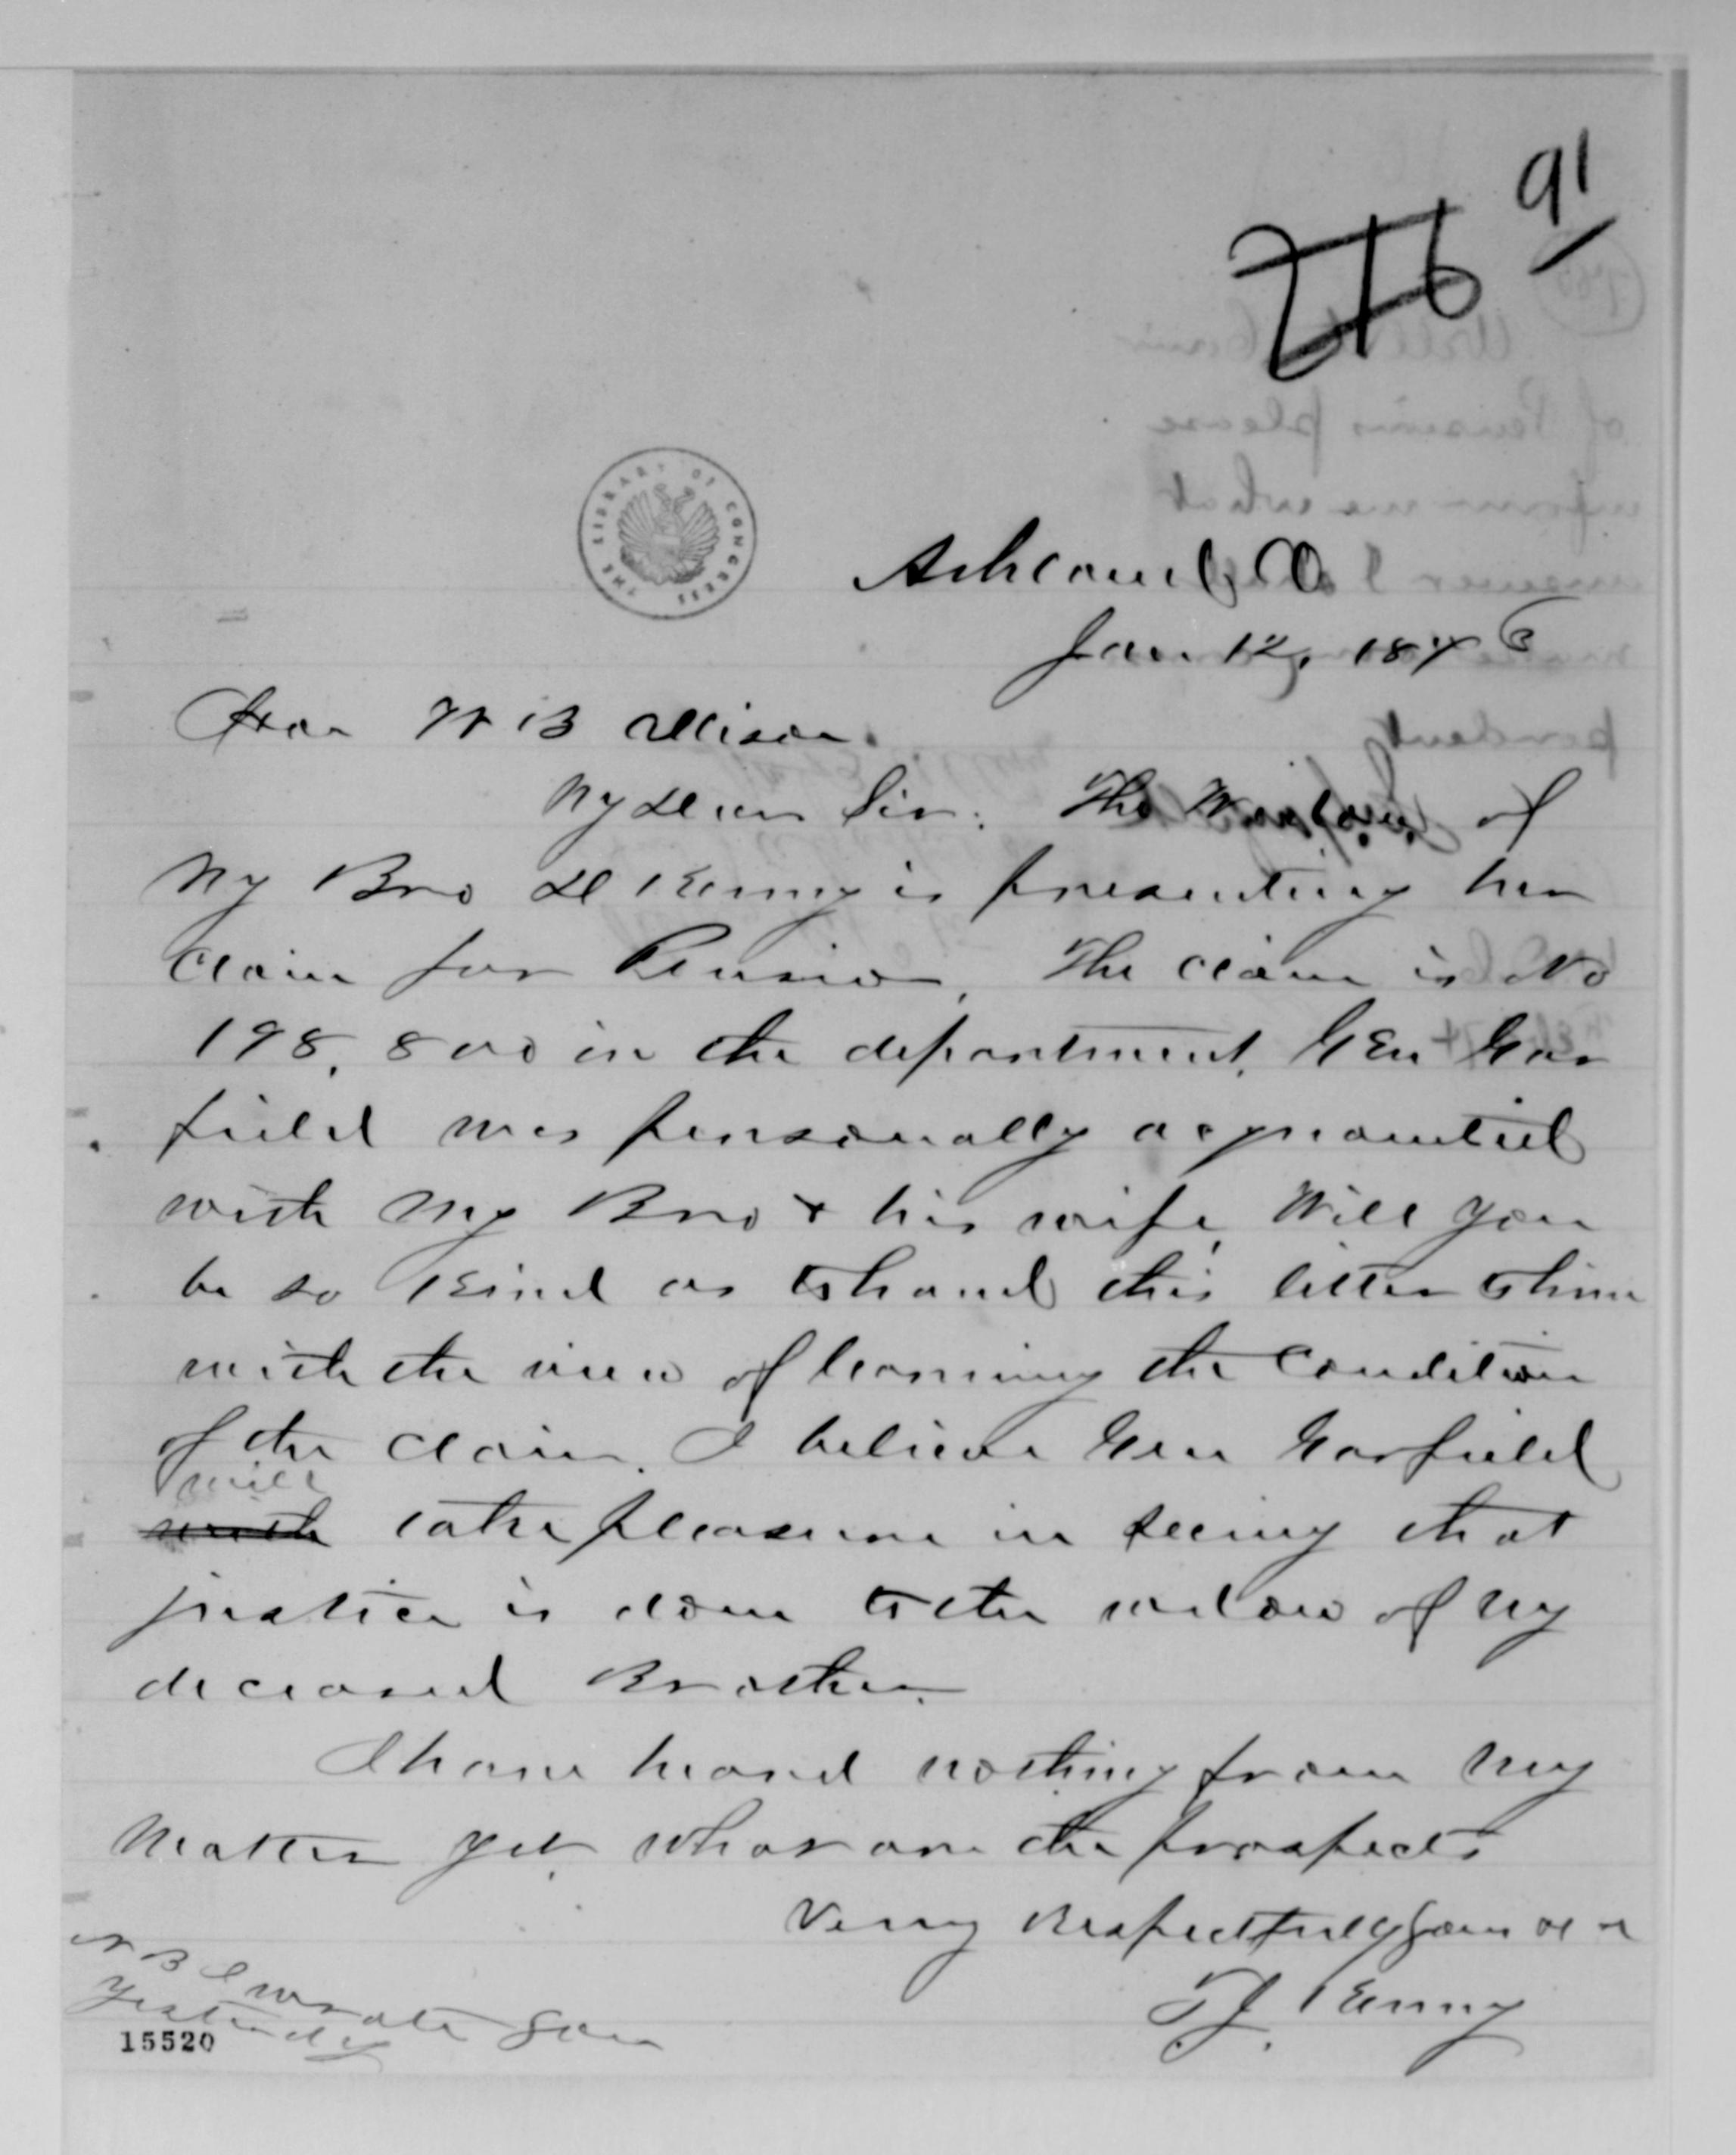 91
216
THE LIBRARY OF CONGRESS
Ashland, O
Jan. 12, 1876
Hon W B Allison.
My Dear Sir: The Widow of
My Bro D Kenny is presenting her
Claim for Pension. The claim is No
198,800 in the department. Gen Gar
field was personally acquainted
with My Bro & his wife. Will you
be so kind as to hand this letter to him
with the view of learning the Condition
of the claim. I believe Gen Garfield
will
with take pleasure in seeing that
justice is done to the widow of my
deceased Brother.
I have heard nothing from my
Matter yet. What are the prospects
Very Respectfully Yours
T J. Kenny
N B I wrote you
yesterday
15520